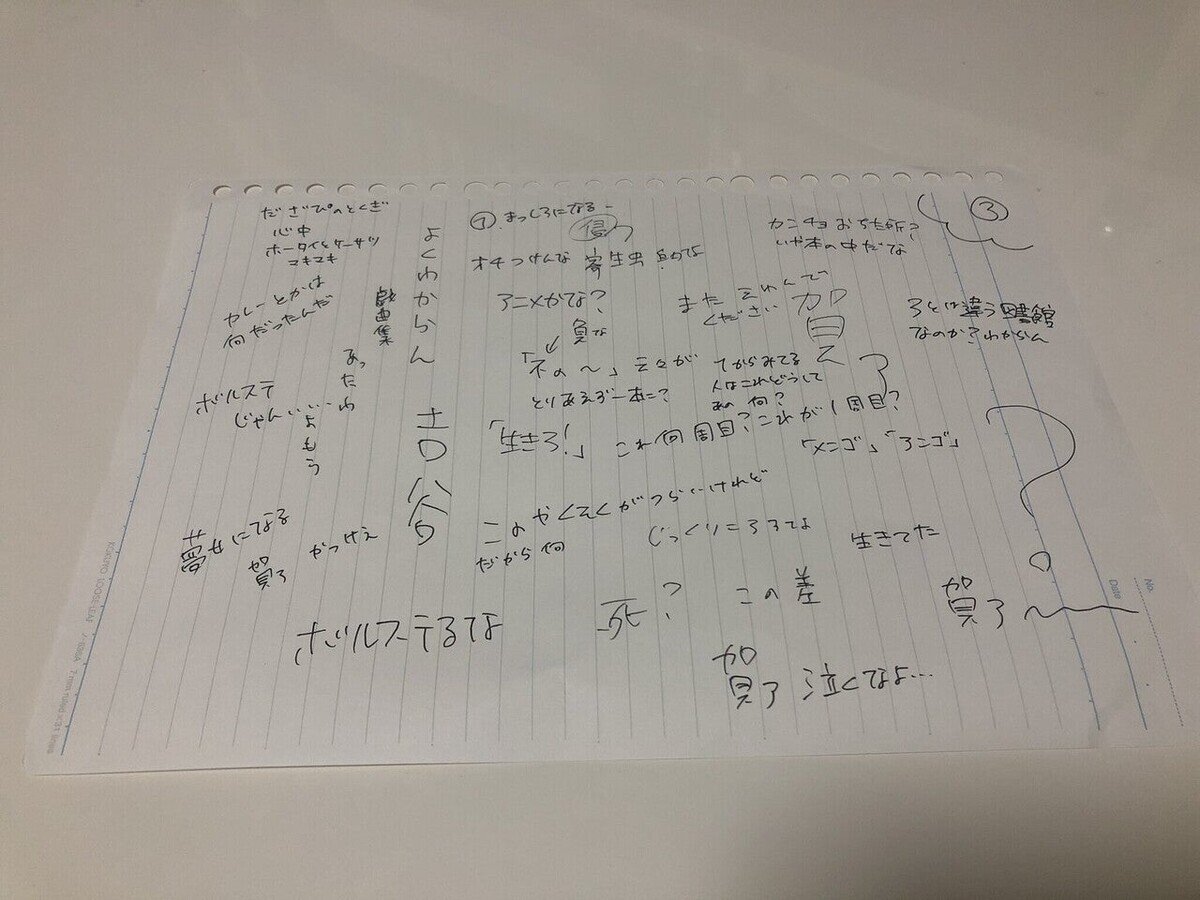 ③
カニチョおちた所?
いや本の中だな
アとは違う図書館
なのか?わからん
?
賀了〜
またえれんで
ください
賀了
「メニゴ」「アニゴ」
生きてた
① まっしろになる
侵
オチつけんな 寄生虫
アニメかな?
負な
「不の〜」云々が
とりあえず一本=?
てからみてる
人はこれどうして
あの何?
「生きろ!」 これ何周目?これが1周目?
このやくそくがつらいけれど
だから何
じっくり=ろろてよ
死?
この差
賀了 泣くてなよ…
よくわからん 吉 谷
だざぴのとくぎ
心中
ホータイとケーサツ
マキマキ
カレーとかは
何だったんだ
戯曲集
あったわ
よもう
ボルステ
じゃんいい…
夢女になる
賀了 かっけえ
ボルステるてよ
KOKUYO LOOSE-LEAF
7 mm ruled × 31 lines
No.
Date